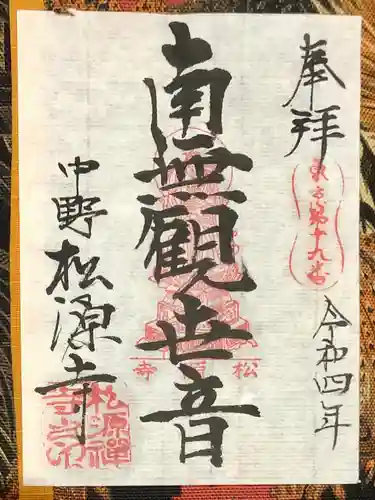 奉拝
東方第十九番
令和四年
南無観世音
松源寺
中野松源寺
松源禅寺之印